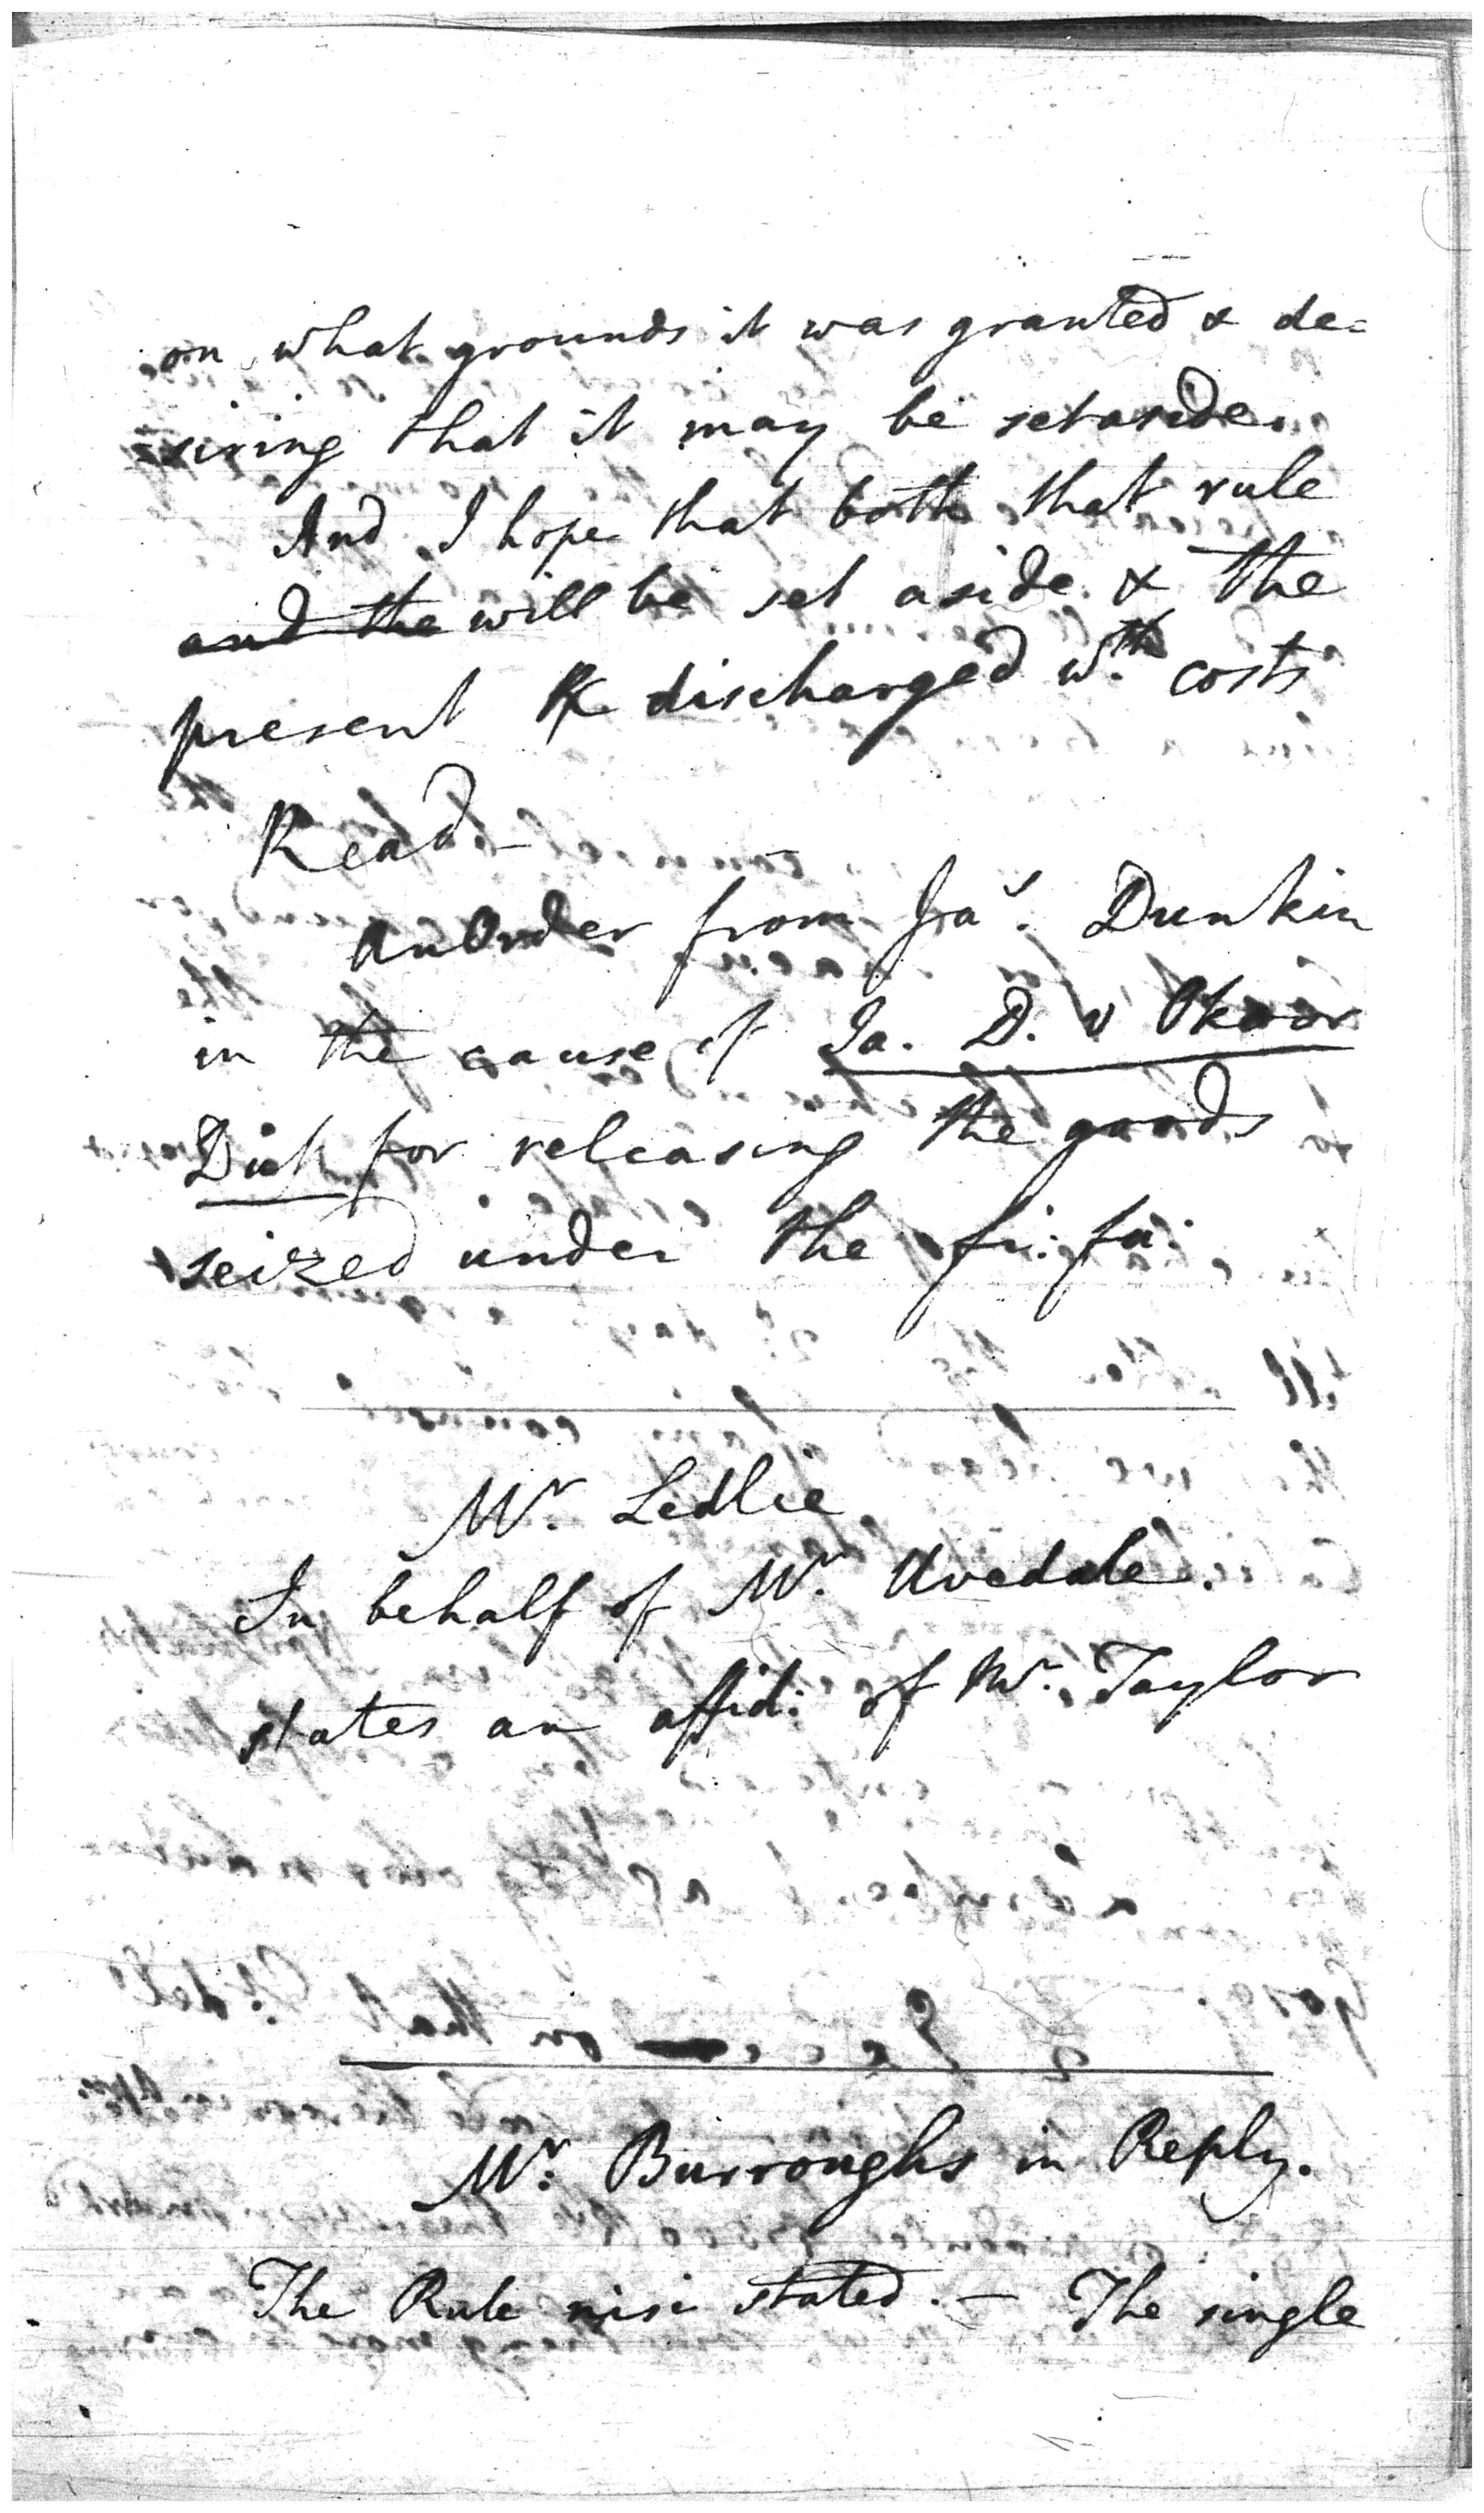 on what grounds it was granted & de=
=siring that it may be set aside.
And I hope that both that rule
and the will be set aside & the
present R discharged wth. costs
Read—
An Order from Jas. Dunkin
in the cause of Ja. D. v
Dick for releasing the goods
seized under the fi: fa:
Mr. Ledlie
In behalf of Mr. Uvedale.
states an affid: of Mr. Taylor
Mr. Burroughs in Reply.
The Rule nisi stated. — The single